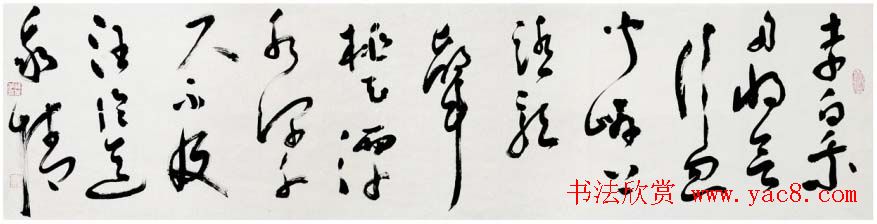 李白乘
舟将欲
行忽
闻岸上
踏歌
声
桃花潭
水深千
尺不及
汪伦送
我情
书法欣赏 www.yac8.com